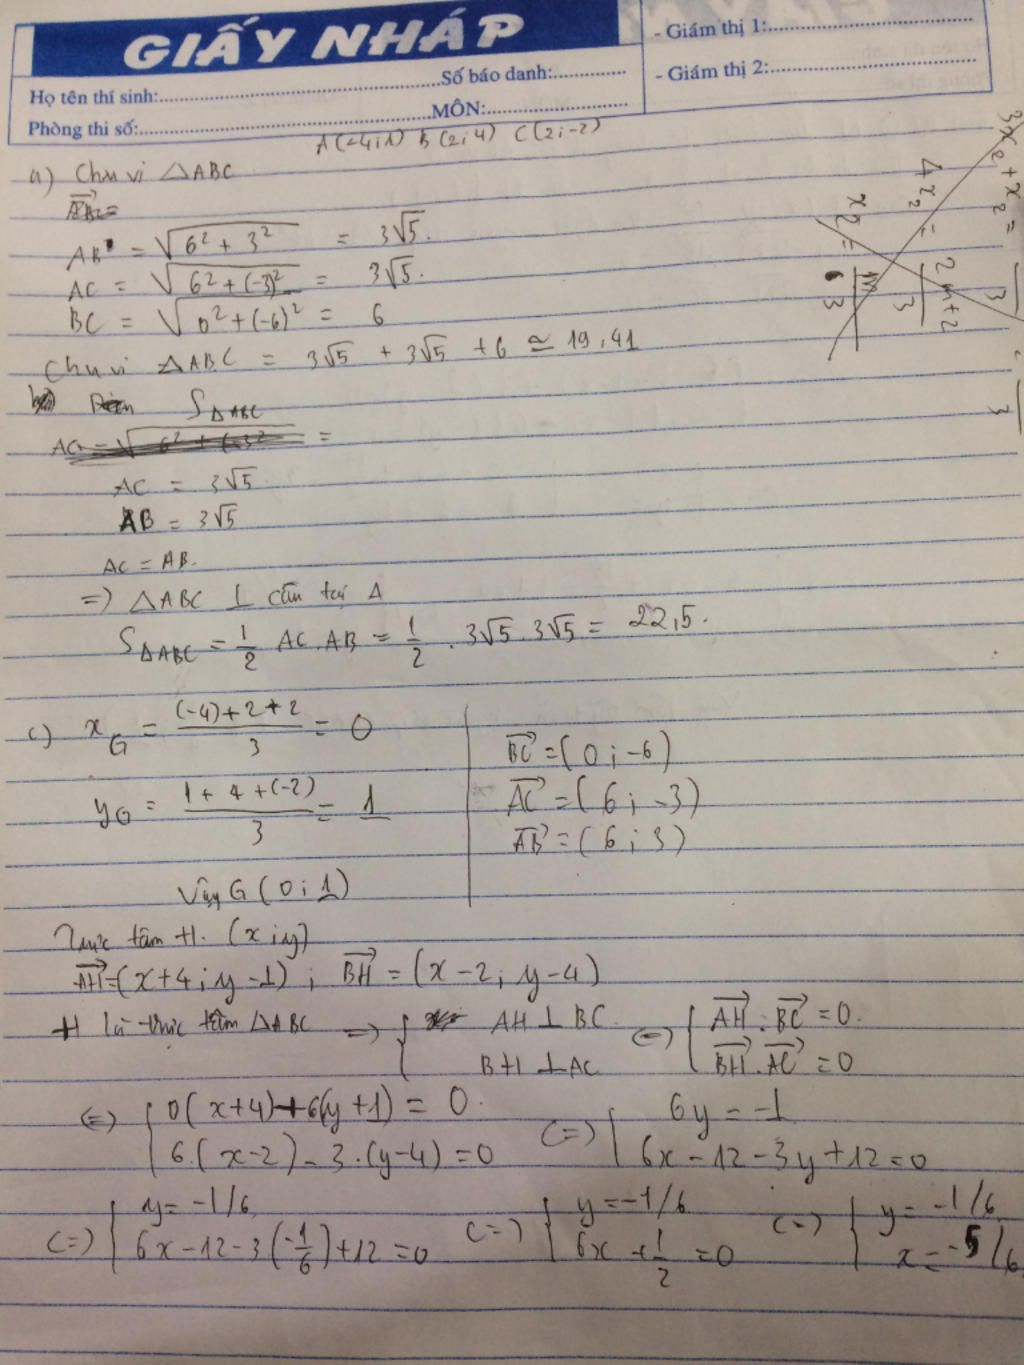 GIẤY NHÁP
- Giám thị 1:
Số báo danh:
- Giám thị 2:
Họ tên thí sinh:
MÔN:
Phòng thi số:
A(-4;1) B(2;4) C(2;-2)
a) Chu vi △ABC
AB = √(6² + 3²) = 3√5.
AC = √(6² + (-3)²) = 3√5.
BC = √(0² + (-6)²) = 6
Chu vi △ABC = 3√5 + 3√5 + 6 ≃ 19,41
S△ABC
AC = 3√5
AB = 3√5
AC = AB.
=> △ABC ⊥ cân tại A
S△ABC = 1/2 AC.AB = 1/2 . 3√5.3√5 = 22,5.
c) x_G = ((-4)+2+2)/3 = 0
y_G = (1+4+(-2))/3 = 1
Vậy G(0;1)
BC→ = (0;-6)
AC→ = (6;-3)
AB→ = (6;3)
Trực tâm H. (x;y)
AH→ = (x+4;y-1); BH→ = (x-2;y-4)
H là trực tâm △ABC => { AH ⊥ BC. BH ⊥ AC <=> { AH→.BC→ = 0. BH→.AC→ = 0
<=> { 0(x+4)+6(y+1) = 0. 6.(x-2)-3.(y-4) = 0 <=> { 6y = -1 6x-12-3y+12 = 0
<=> { y = -1/6 6x-12-3(-1/6)+12 = 0 <=> { y = -1/6 6x+1/2 = 0 <=> { y = -1/6 x = -5/6